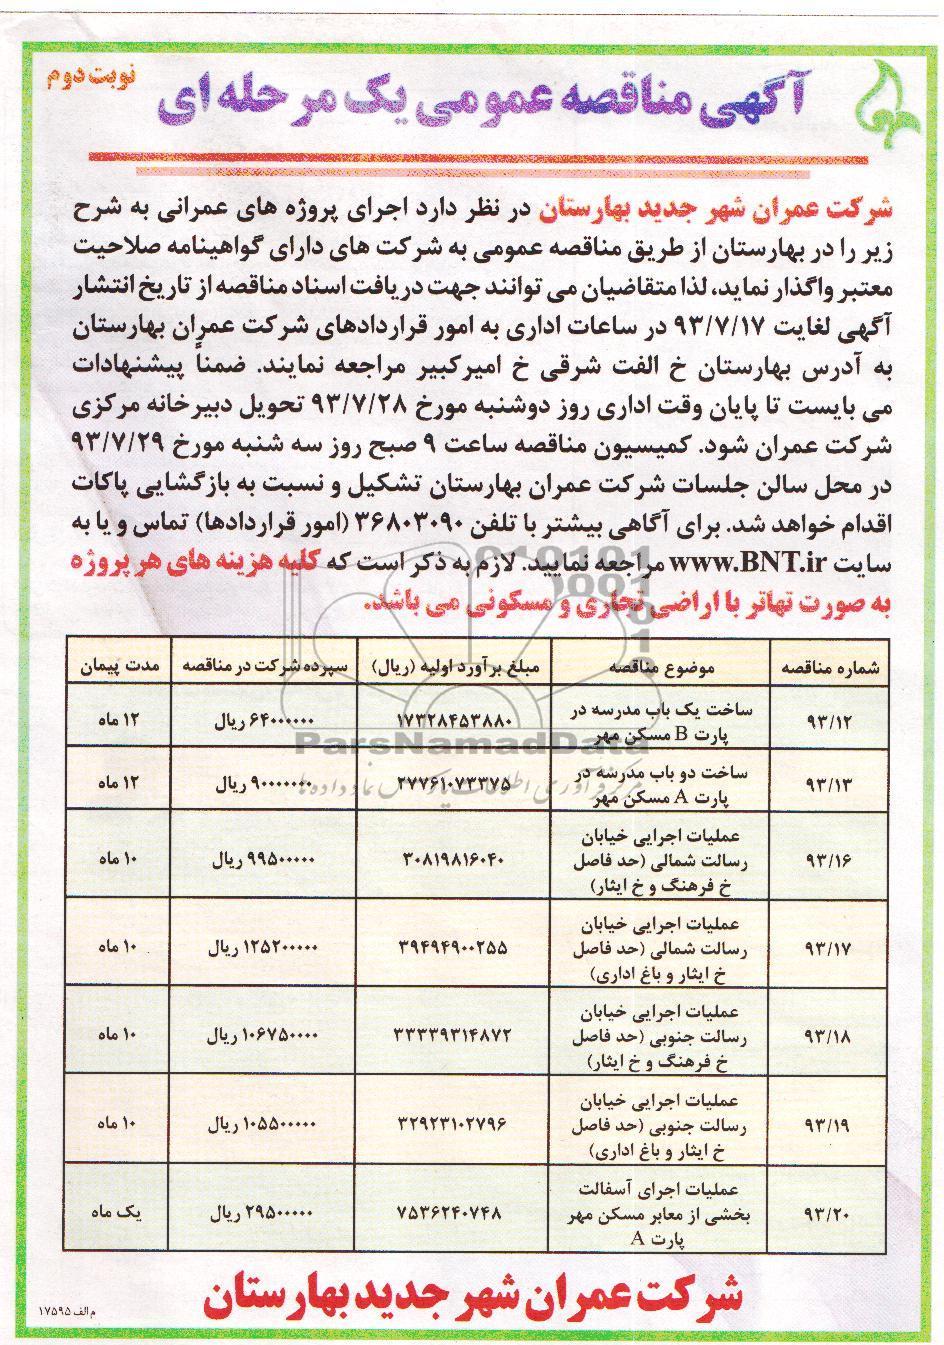 نوبت دوم
آگهی مناقصه عمومی یک مرحله ای
شرکت عمران شهر جدید بهارستان در نظر دارد اجرای پروژه های عمرانی به شرح
زیر را در بهارستان از طریق مناقصه عمومی به شرکت های دارای گواهینامه صلاحیت
معتبر واگذار نماید، لذا متقاضیان می توانند جهت دریافت اسناد مناقصه از تاریخ انتشار
آگهی لغایت ۹۳/۷/۱۷ در ساعات اداری به امور قراردادهای شرکت عمران بهارستان
به آدرس بهارستان خ الفت شرقی خ امیرکبیر مراجعه نمایند. ضمناً پیشنهادات
می بایست تا پایان وقت اداری روز دوشنبه مورخ ۹۳/۷/۲۸ تحویل دبیرخانه مرکزی
شرکت عمران شود. کمیسیون مناقصه ساعت ۹ صبح روز سه شنبه مورخ ۹۳/۷/۲۹
در محل سالن جلسات شرکت عمران بهارستان تشکیل و نسبت به بازگشایی پاکات
اقدام خواهد شد. برای آگاهی بیشتر با تلفن ۳۶۸۰۳۰۹۰ (امور قراردادها) تماس و یا به
سایت www.BNT.ir مراجعه نمایید. لازم به ذکر است که کلیه هزینه های هر پروژه
به صورت تهاتر با اراضی تجاری و مسکونی می باشد.
شماره مناقصه موضوع مناقصه مبلغ برآورد اولیه (ریال) سپرده شرکت در مناقصه مدت پیمان
۹۳/۱۲ ساخت یک باب مدرسه در
پارت B مسکن مهر ۱۷۳۲۸۴۵۳۸۸۰ ۶۴۰۰۰۰۰۰ ریال ۱۲ ماه
۹۳/۱۳ ساخت دو باب مدرسه در
پارت A مسکن مهر ۲۷۷۶۱۰۷۳۳۷۵ ۹۰۰۰۰۰۰۰ ریال ۱۲ ماه
۹۳/۱۶ عملیات اجرایی خیابان
رسالت شمالی (حد فاصل
خ فرهنگ و خ ایثار) ۳۰۸۱۹۸۱۶۰۴۰ ۹۹۵۰۰۰۰۰ ریال ۱۰ ماه
۹۳/۱۷ عملیات اجرایی خیابان
رسالت شمالی (حد فاصل
خ ایثار و باغ اداری) ۳۹۴۹۴۹۰۰۲۵۵ ۱۲۵۲۰۰۰۰۰ ریال ۱۰ ماه
۹۳/۱۸ عملیات اجرایی خیابان
رسالت جنوبی (حد فاصل
خ فرهنگ و خ ایثار) ۳۳۳۳۹۳۱۴۸۷۲ ۱۰۶۷۵۰۰۰۰ ریال ۱۰ ماه
۹۳/۱۹ عملیات اجرایی خیابان
رسالت جنوبی (حد فاصل
خ ایثار و باغ اداری) ۳۲۹۲۳۱۰۲۷۹۶ ۱۰۵۵۰۰۰۰۰ ریال ۱۰ ماه
۹۳/۲۰ عملیات اجرای آسفالت
بخشی از معابر مسکن مهر
پارت A ۷۵۳۶۲۴۰۷۴۸ ۲۹۵۰۰۰۰۰ ریال یک ماه
ParsNamadData
شرکت عمران شهر جدید بهارستان
م الف ۱۷۵۹۵